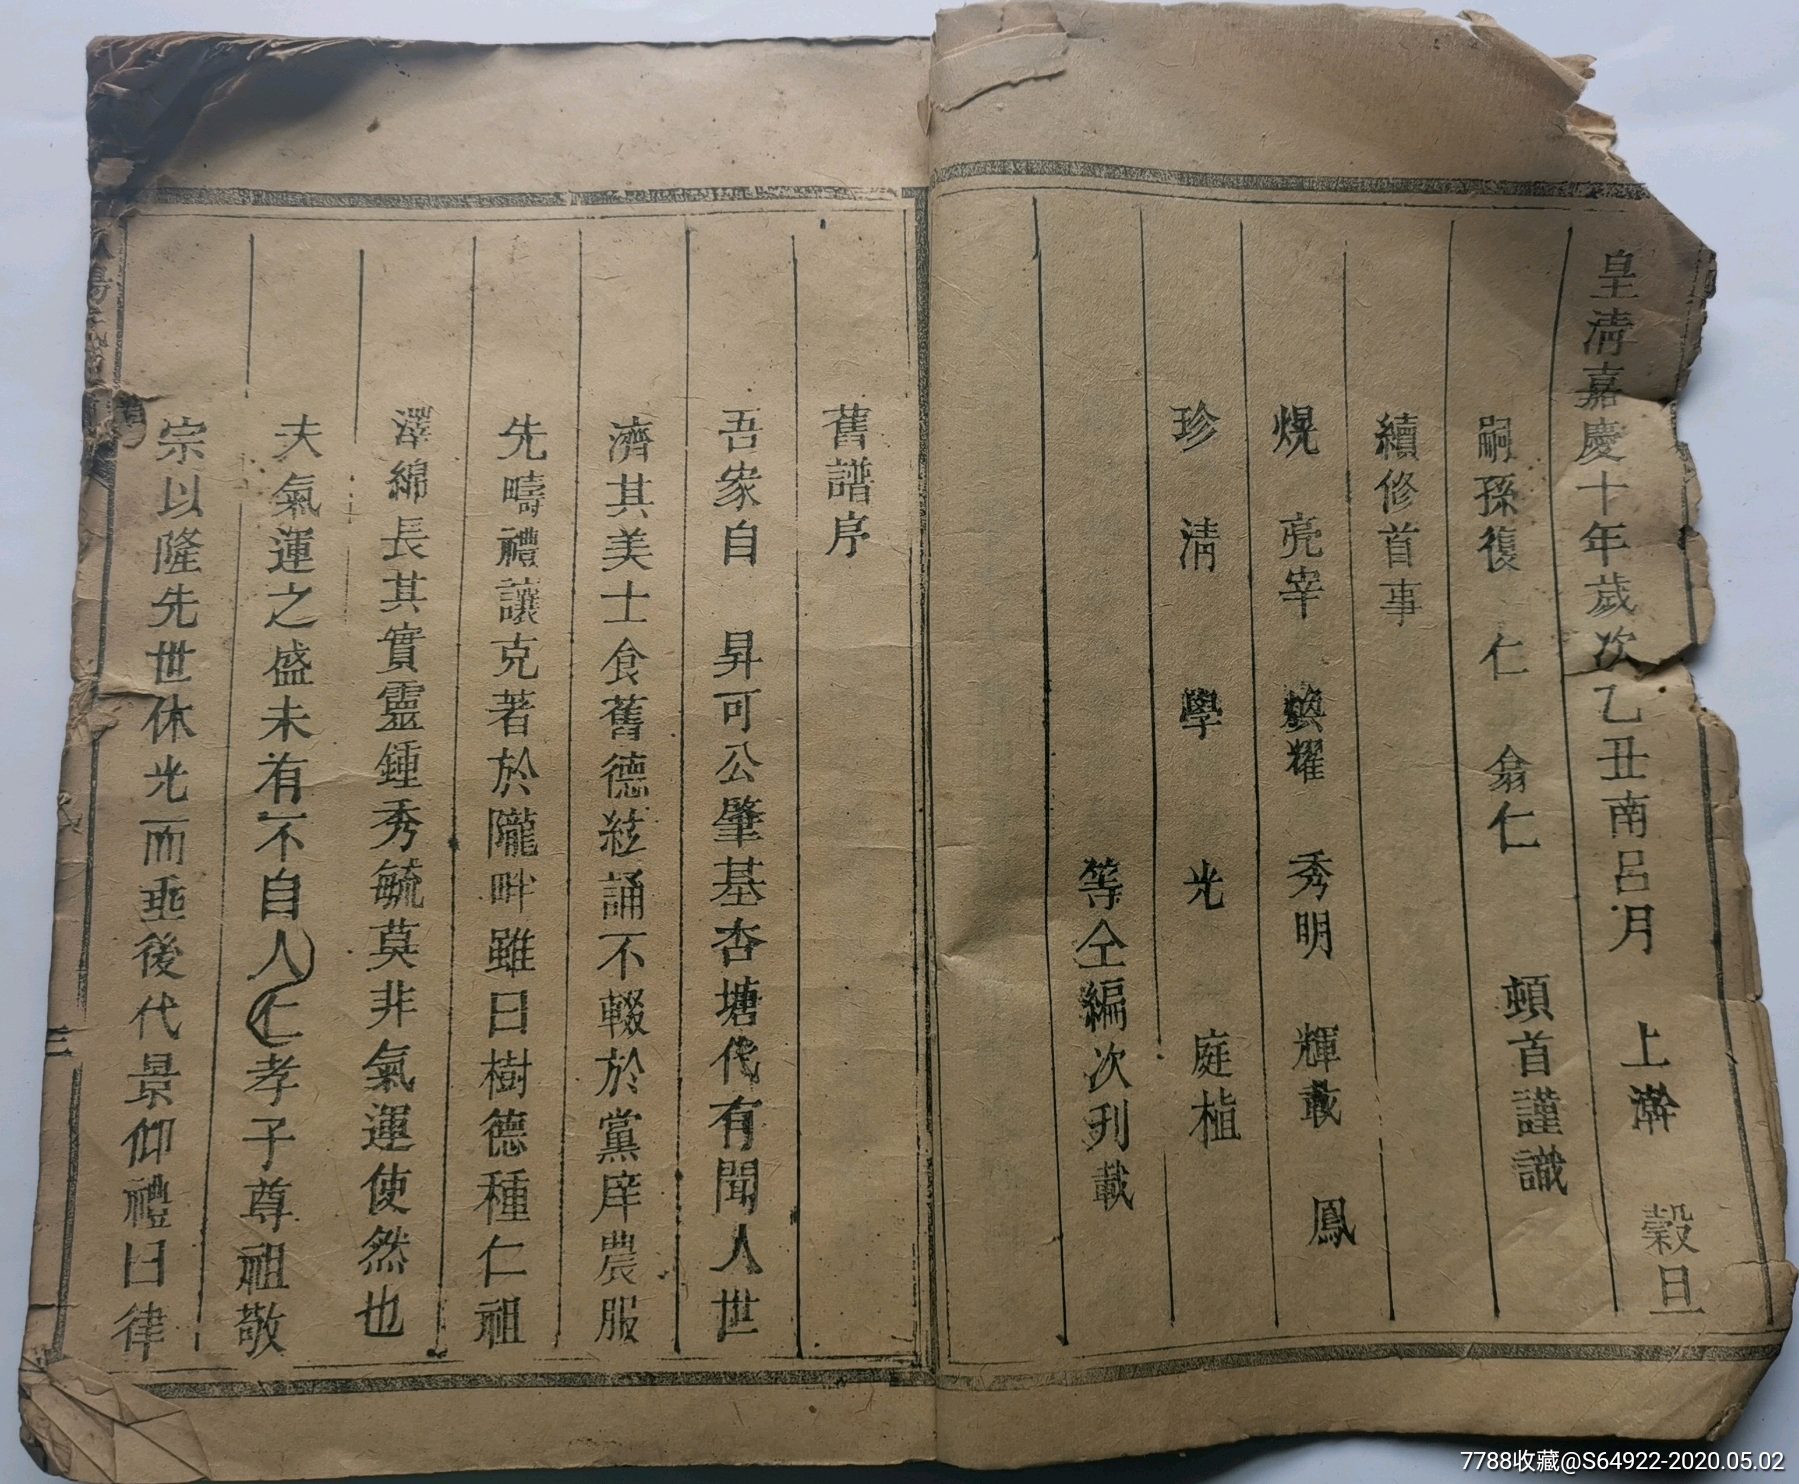 皇清嘉慶十年歲次乙丑南呂月 上澣 穀旦
嗣孫復 仁 翕仁 頓首謹識
續修首事
熀 亮宰 煥耀 秀明 輝 鳳
珍 淸 學 光 庭植
等仝編次刋載
舊譜序
吾家自 昇可公肇基杏塘代有聞人世
濟其美士食舊德絃誦不輟於黨庠農服
先疇禮讓克著於隴畔雖曰樹德種仁祖
澤綿長其實靈鍾秀毓莫非氣運使然也
夫氣運之盛未有不自人仁孝子尊祖敬
宗以隆先世休光而垂後代景仰禮曰律
三
7788收藏@S64922-2020.05.02